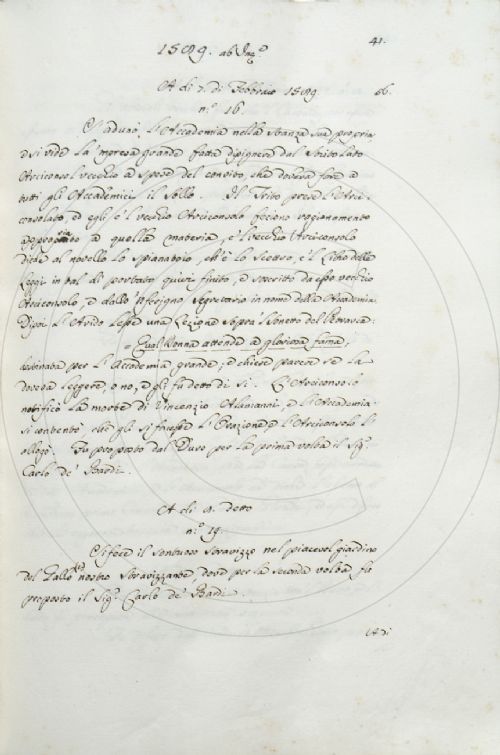 41.
1589. ab Inc.º
A di 7. di Febbraio 1589. 66.
n.º 16
S'adunò l'Accademia nella stanza sua propria,
e si vide la Impresa grande fatta dipignere dal Stritolato
Arciconsol vecchio a spese del convito, che doveva fare a
tutti gli Accademici il Sollo. Il Trito prese l'Arci-
consolato, ed egli, e 'l vecchio Arciconsolo feciono ragionamento
appropriato a quella materia, e 'l vecchio Arciconsolo
diede al novello lo Spianatoio, ch'è lo Scettro, e 'l Libro delle
Leggi in tal dì portato quivi finito, e soscritto da esso vecchio
Arciconsolo, e dallo 'Nferigno Segretario in nome della Accademia.
Dipoi l'Arido lesse una Lezione sopra 'l Sonetto del Petrarca:
= Qual Donna attende a gloriosa fama,
destinata per l'Accademia grande; e chiese parere se la
doveva leggere, o no, e gli fu detto di sì. L'Arciconsolo
notificò la morte di Vincenzio Alamanni, e l'Accademia
si contentò, che gli si facesse l'Orazione, e l'Arciconsolo l'
allogò. Fu proposto dal Duro per la prima volta il Sig.r
Carlo de' Bardi.
A di 9. detto
n.º 19.
Si fece il sontuoso Stravizzo nel piacevol giardino
del nostro Stravizzante, dove per la seconda volta fu
proposto il Sig.r Carlo de' Bardi.
A di